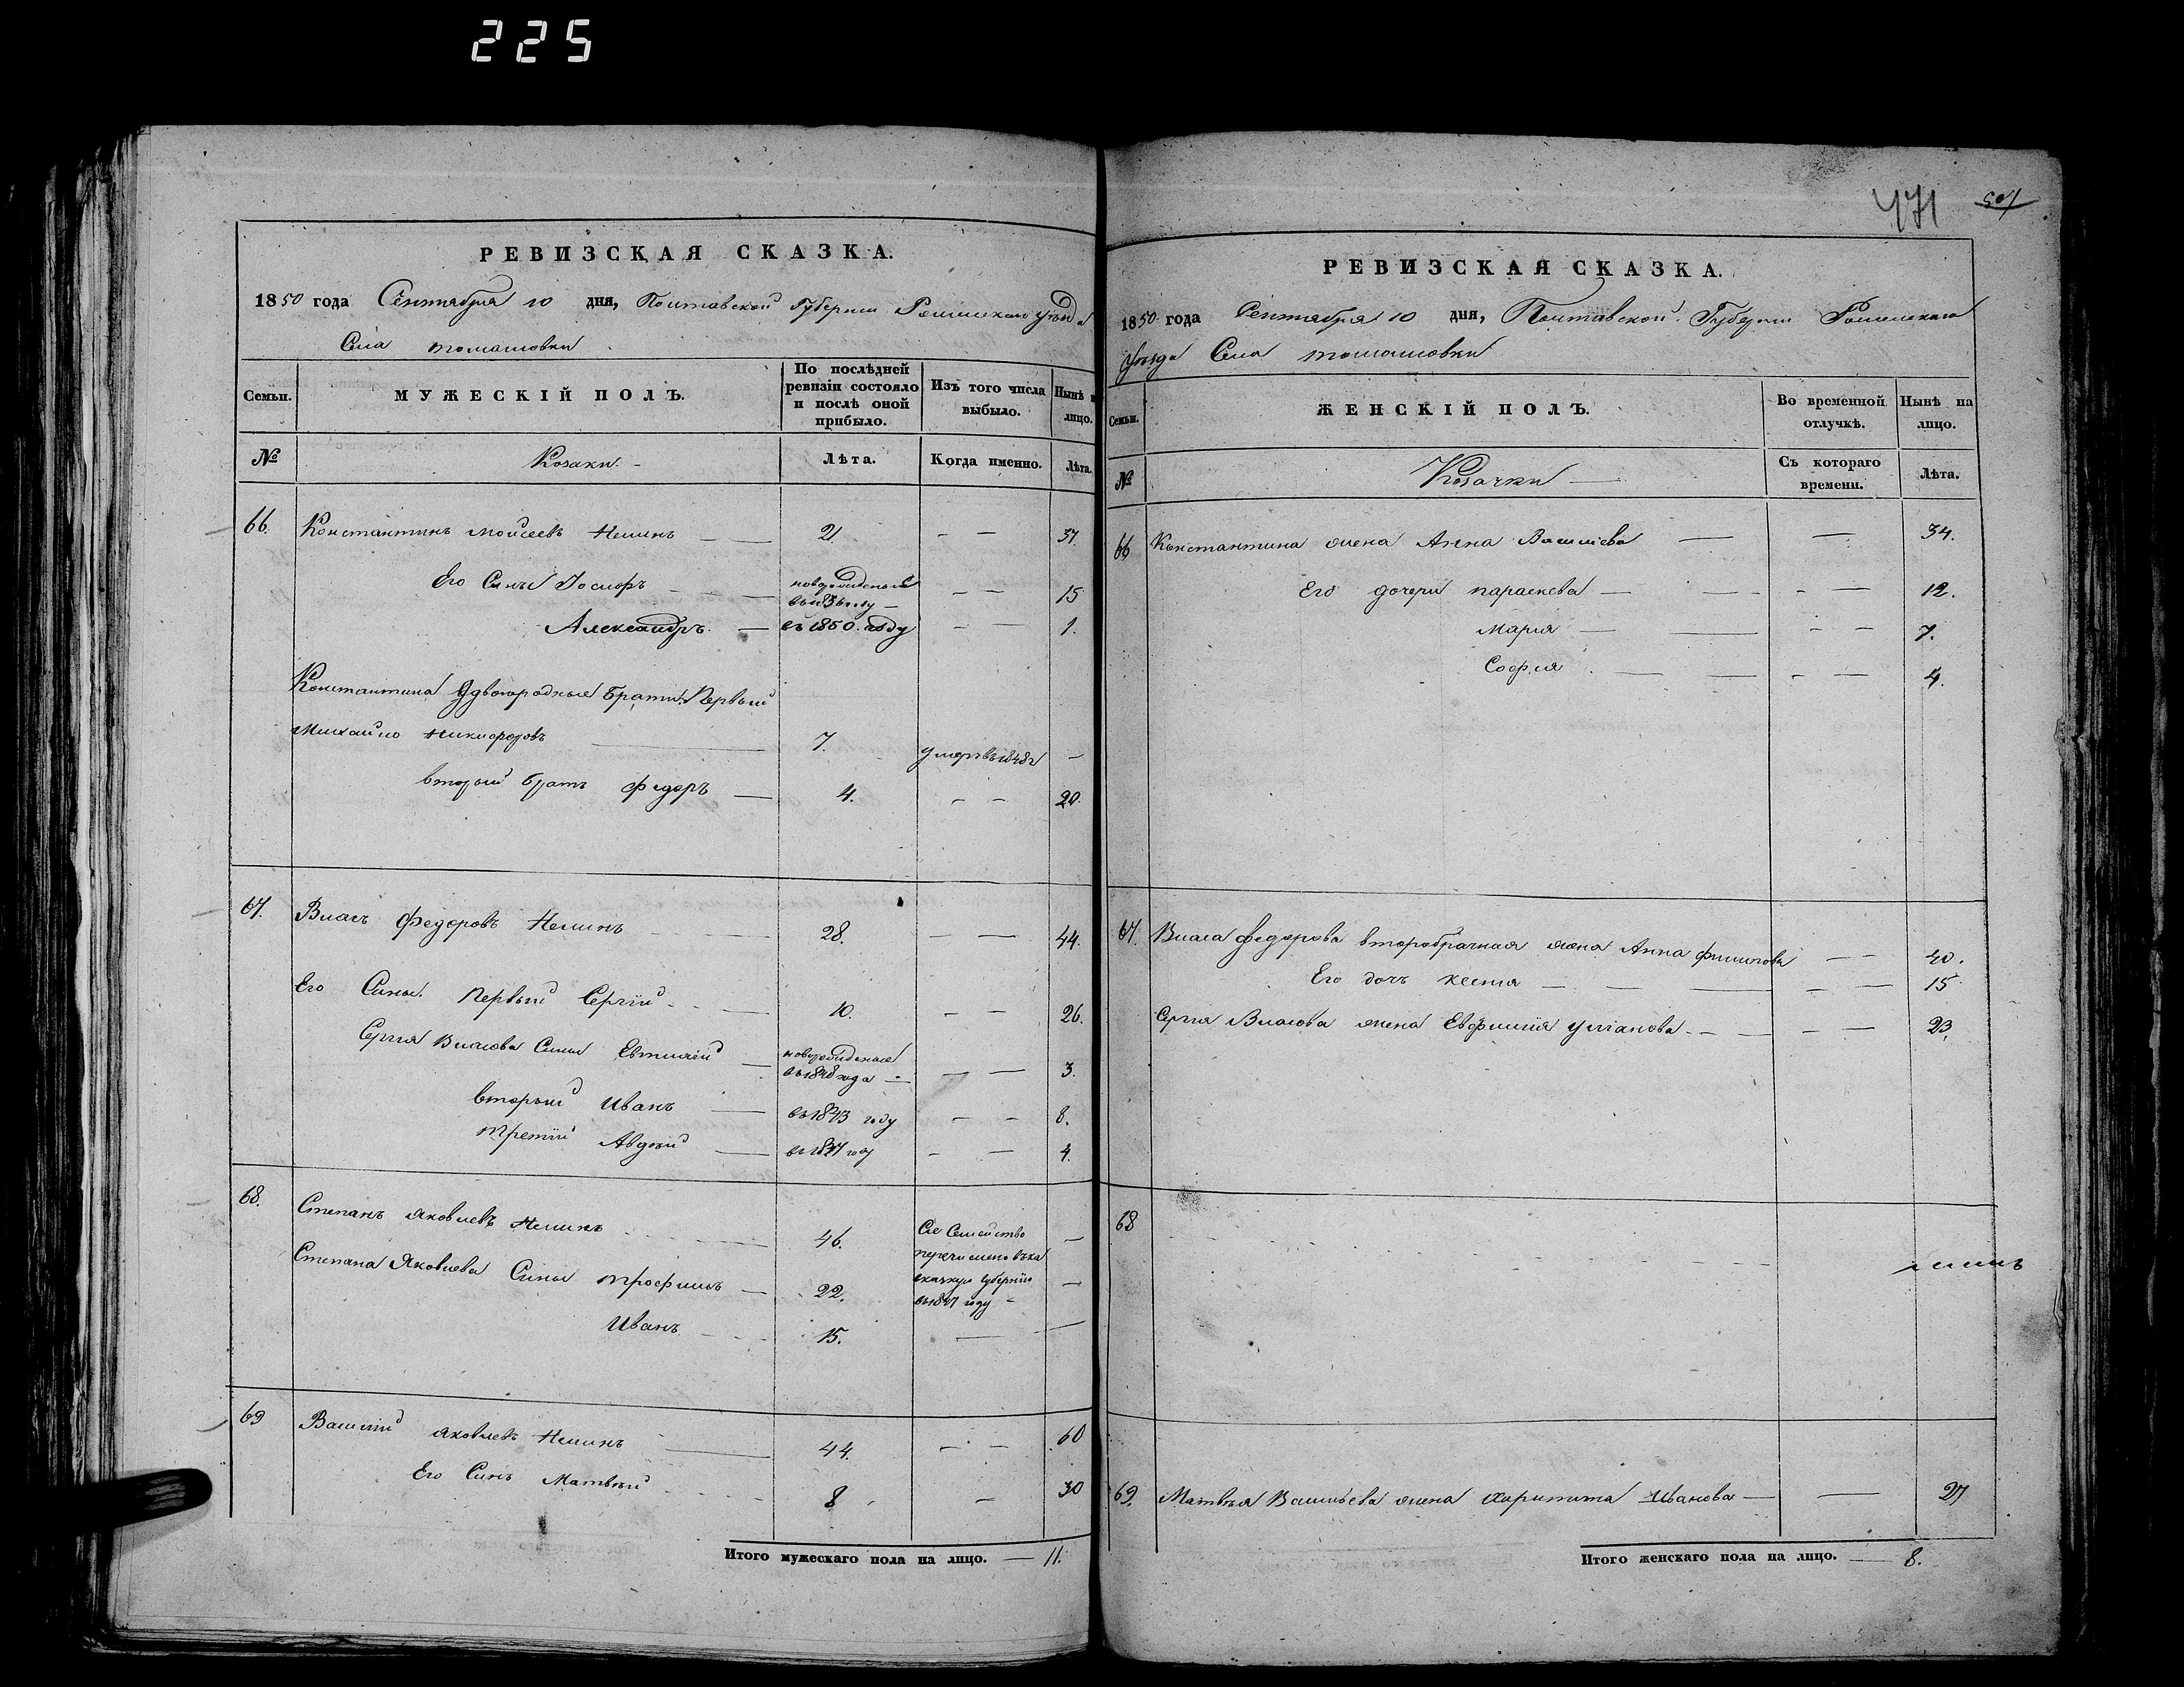 225
РЕВИЗСКАЯ СКАЗКА.
1850 года Сентября 10 дня, Полтавской Губернии Роменскаго уѣзда
Села Томашовки
Семьи.
МУЖЕСКІЙ ПОЛЪ.
По послѣдней ревизіи состояло и послѣ оной прибыло.
Изъ того числа выбыло.
Нынѣ на лицо.
№
Козаки.
Лѣта.
Когда именно.
Лѣта.
66. Константинъ Моисеевъ 21 — — 37.
Его Сины Иосифъ новорожденный — — 15
Александръ — въ 1850 году — — 1.
Константина двоюродные Братия: Первый
Михайло Никифоровъ 7. умеръ въ 1848 —
вторый братъ Федоръ — 4. — — 20.
67. Власъ Федоровъ 28. — — 44.
Его Сины. Первый Сергій 10. — — 26.
Сергія Власова Сины Евтихій — новорожденные въ 1848 года — — — 3.
вторый Иванъ — въ 1843 году — — 8.
третій Авдѣй — — — 4.
68. Степанъ Яковлевъ 46. Сіе Семейство —
Степана Яковлева Сины Трофимъ — 22. перечислено —
Губернію
году
Иванъ 15. — —
69 Василій Яковлевъ 44. — — 60
Его Синъ Матвѣй 8 — 30
Итого мужескаго пола на лицо. — 11.
471 507
РЕВИЗСКАЯ СКАЗКА.
1850 года Сентября 10 дня, Полтавской Губерніи Роменскаго
уѣзда Села Томашовки
Семьи.
ЖЕНСКІЙ ПОЛЪ.
Во временной отлучкѣ.
Нынѣ на лицо.
№
Козачки —
Съ котораго времени.
Лѣта.
66 Константина жена Анна Василіева — — 34.
Его дочери Параскева — — — 12.
Марія — — — — 7.
Софія — — — — 4.
67. Власа Федорова второбрачная жена Анна Филипова — — 40.
Его дочь Ксенія — — — — — 15
Сергія Власова жена Евфимія Уліанова — — — 23.
68
69. Матвѣя Васильева жена Харитина Иванова — — 27
Итого женскаго пола на лицо. — 8.